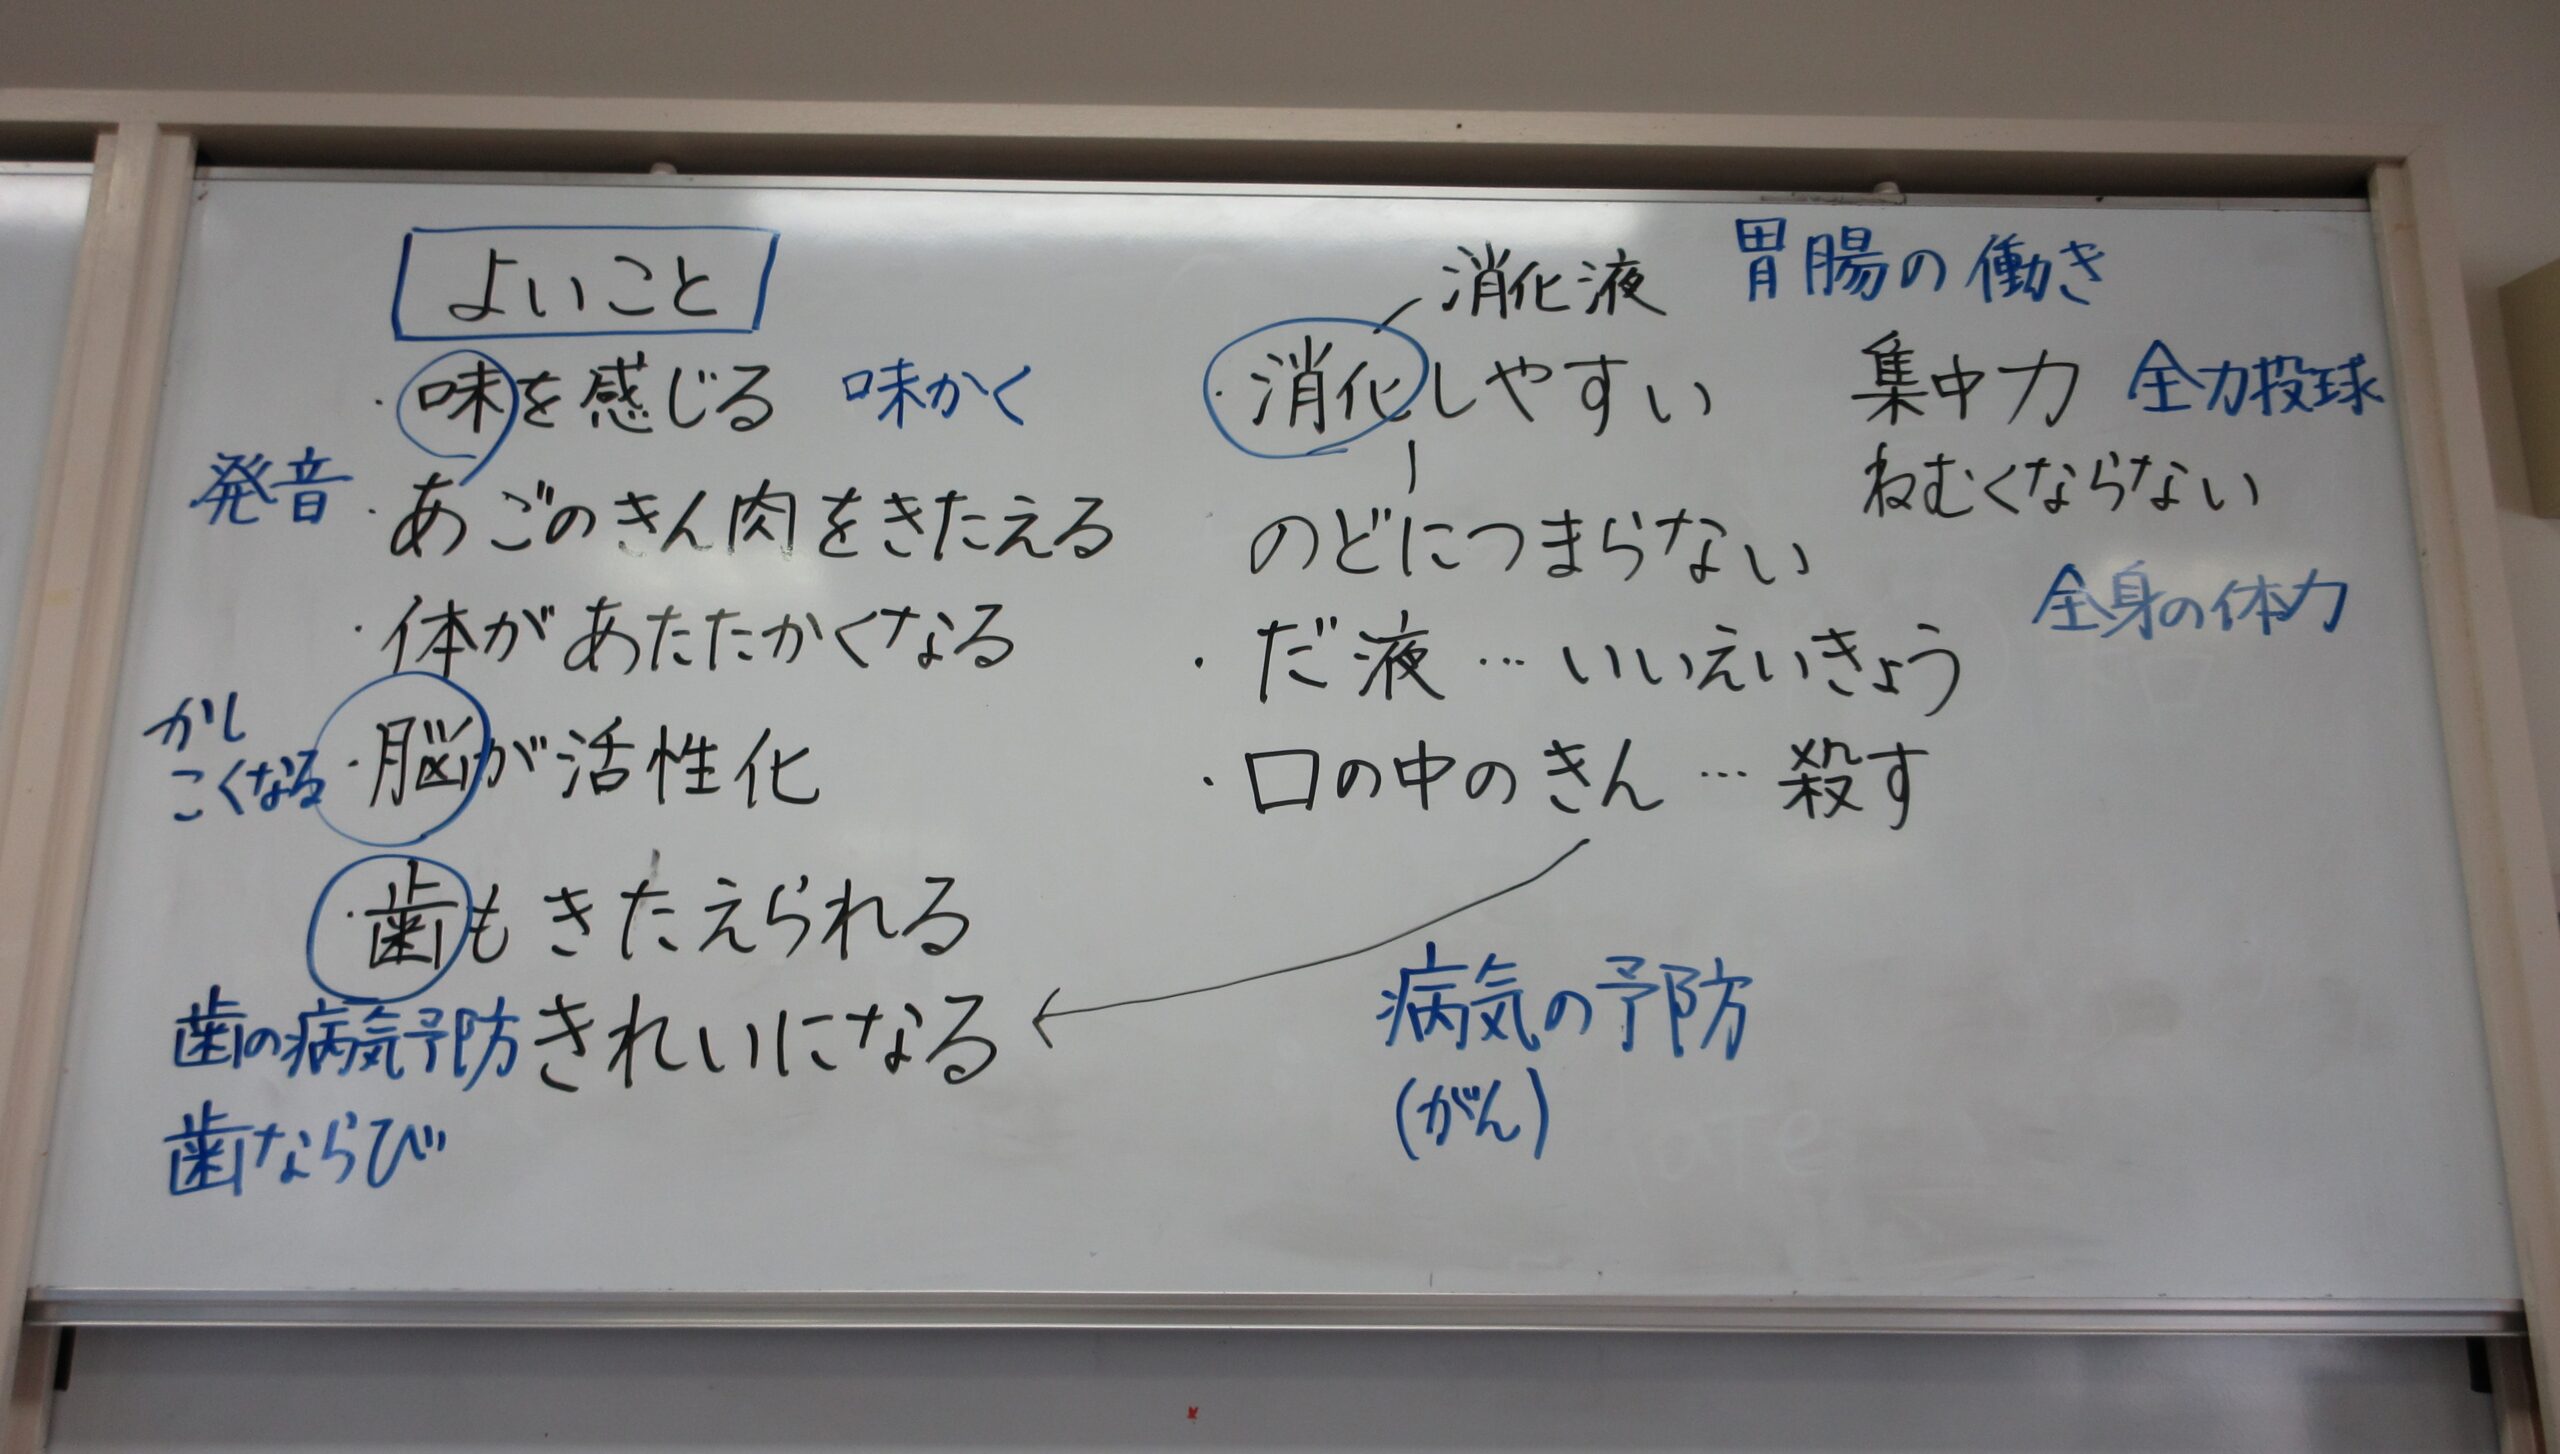 よいこと
・味を感じる 味かく
発音 ・あごのきん肉をきたえる
・体があたたかくなる
かし
こくなる ・脳が活性化
・歯もきたえられる
歯の病気予防 きれいになる
歯ならび
消化液 胃腸の働き
・消化しやすい
のどにつまらない
・だ液…いいえいきょう
・口の中のきん…殺す
病気の予防
(がん)
集中力 全力投球
ねむくならない
全身の体力